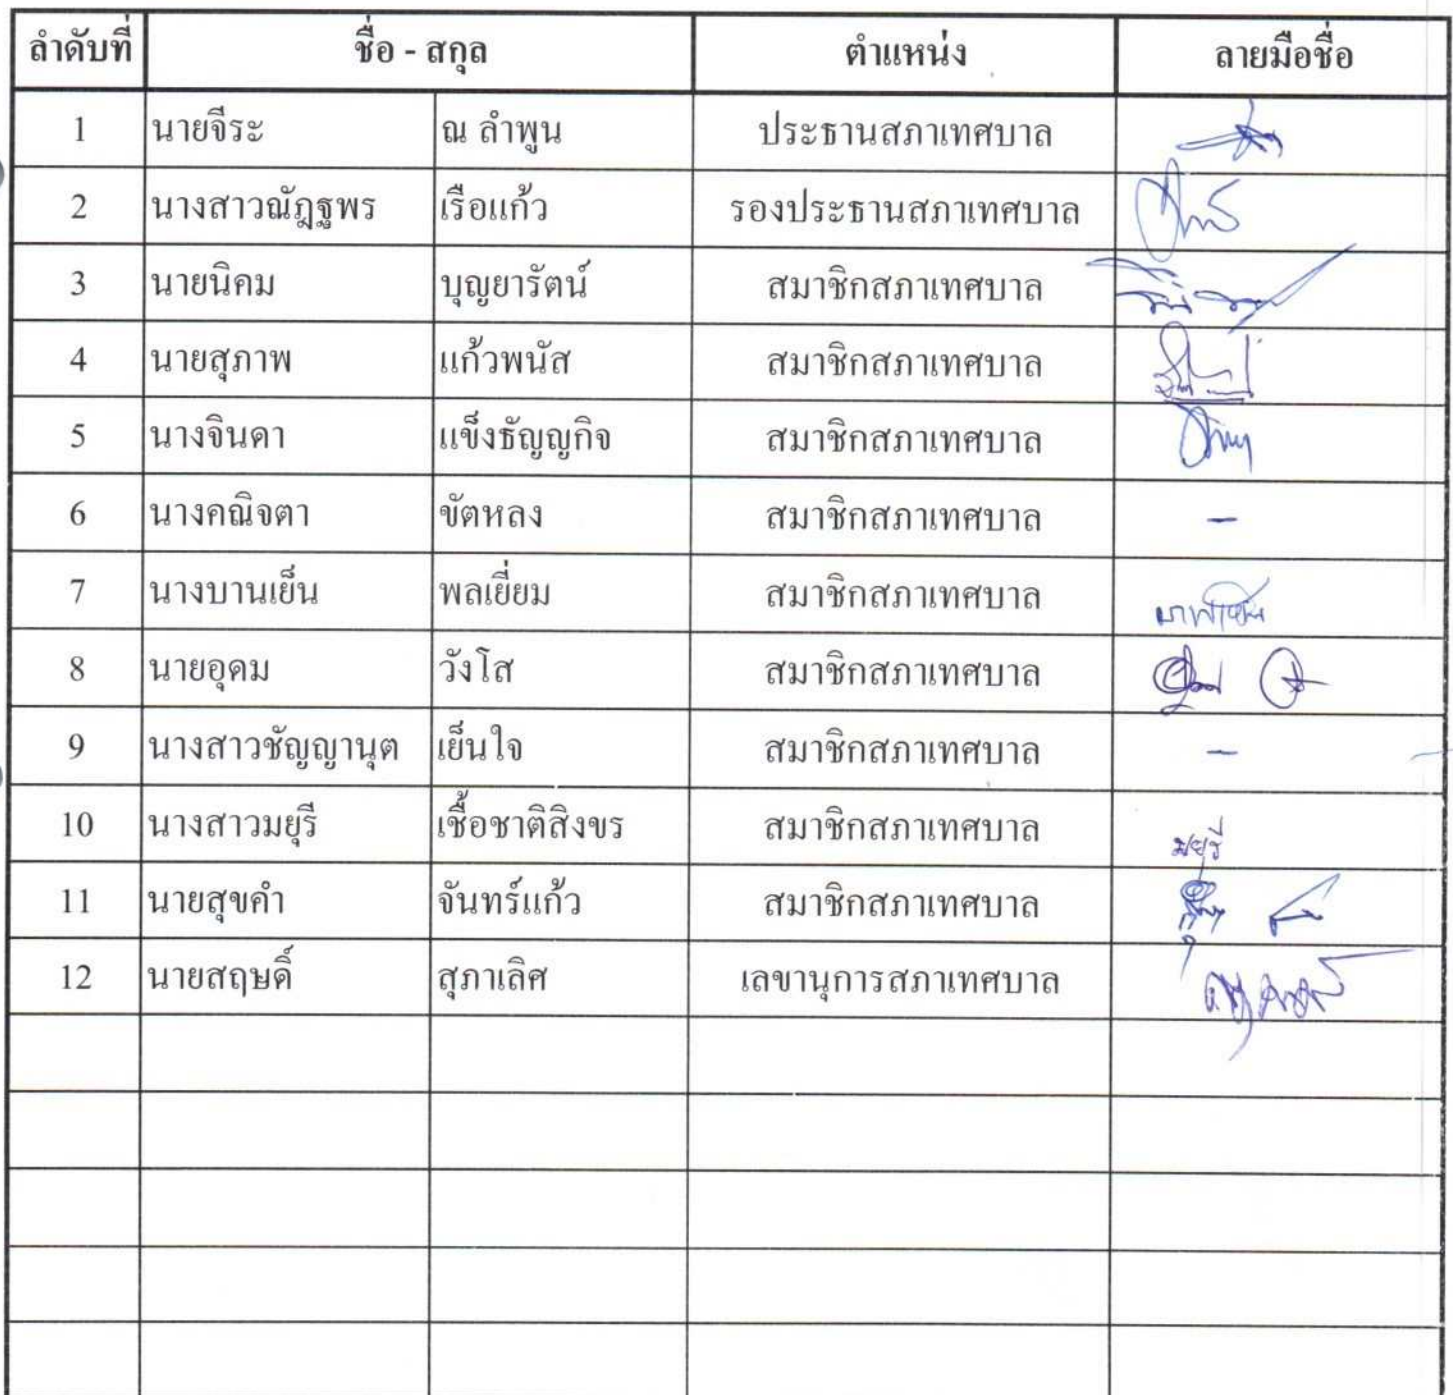 ลำดับที่ ชื่อ - สกุล ตำแหน่ง ลายมือชื่อ
1 นายจีระ ณ ลำพูน ประธานสภาเทศบาล
2 นางสาวณัฎฐพร เรือแก้ว รองประธานสภาเทศบาล
3 นายนิคม บุญยารัตน์ สมาชิกสภาเทศบาล
4 นายสุภาพ แก้วพนัส สมาชิกสภาเทศบาล
5 นางจินดา แข็งธัญญกิจ สมาชิกสภาเทศบาล
6 นางคณิจตา ขัตหลง สมาชิกสภาเทศบาล -
7 นางบานเย็น พลเยี่ยม สมาชิกสภาเทศบาล บานเย็น
8 นายอุดม วังโส สมาชิกสภาเทศบาล
9 นางสาวชัญญานุต เย็นใจ สมาชิกสภาเทศบาล -
10 นางสาวมยุรี เชื้อชาติสิงขร สมาชิกสภาเทศบาล มยุรี
11 นายสุขคำ จันทร์แก้ว สมาชิกสภาเทศบาล
12 นายสฤษดิ์ สุภาเลิศ เลขานุการสภาเทศบาล